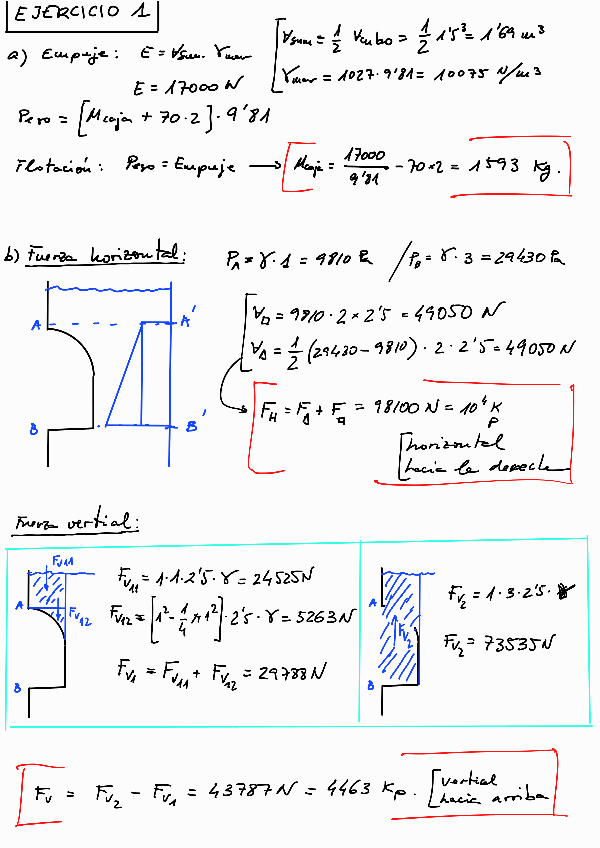 EJERCICIO 1
a) Empuje: E = ∀sum. γmar
∀sum = 1/2 ∀cubo = 1/2 1'5³ = 1'69 m³
γmar = 1027 · 9'81 = 10075 N/m³
E = 17000 N
Peso = [Mcaja + 70·2] · 9'81
Flotación: Peso = Empuje → Mcaja = 17000/9'81 - 70*2 = 1593 Kg.
b) Fuerza horizontal: PA = γ · 1 = 9810 Pa / PB = γ · 3 = 29430 Pa
∀□ = 9810 · 2 * 2'5 = 49050 N
∀Δ = 1/2 (29430 - 9810) · 2 · 2'5 = 49050 N
A A'
B B'
FH = FΔ + F□ = 98100 N = 10⁴ Kp
horizontal
hacia la derecha
Fuerza vertical:
FV11
A FV12
B
FV11 = 1·1·2'5 · γ = 24525 N
FV12 = [1² - 1/4 π 1²] · 2'5 · γ = 5263 N
FV1 = FV11 + FV12 = 29788 N
A
FV2
B
FV2 = 1·3·2'5 · γ
FV2 = 73535 N
FV = FV2 - FV1 = 43787 N = 4463 Kp.
vertical
hacia arriba